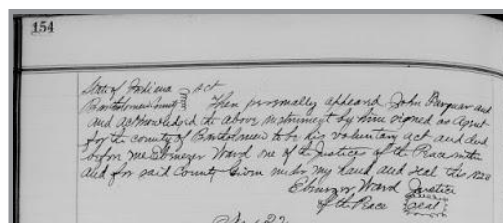 154
State of Indiana Sct
Bartholomew County Then personally appeared John and
and acknowledged the above instrument by him signed as Agent
for the county of Bartholomew to be his voluntary act and deed
before me Ebenezer Ward one of the Justices of the Peace within
and for said County Given under my hand and seal this
Ebenezer Ward Justice
of the Peace seal